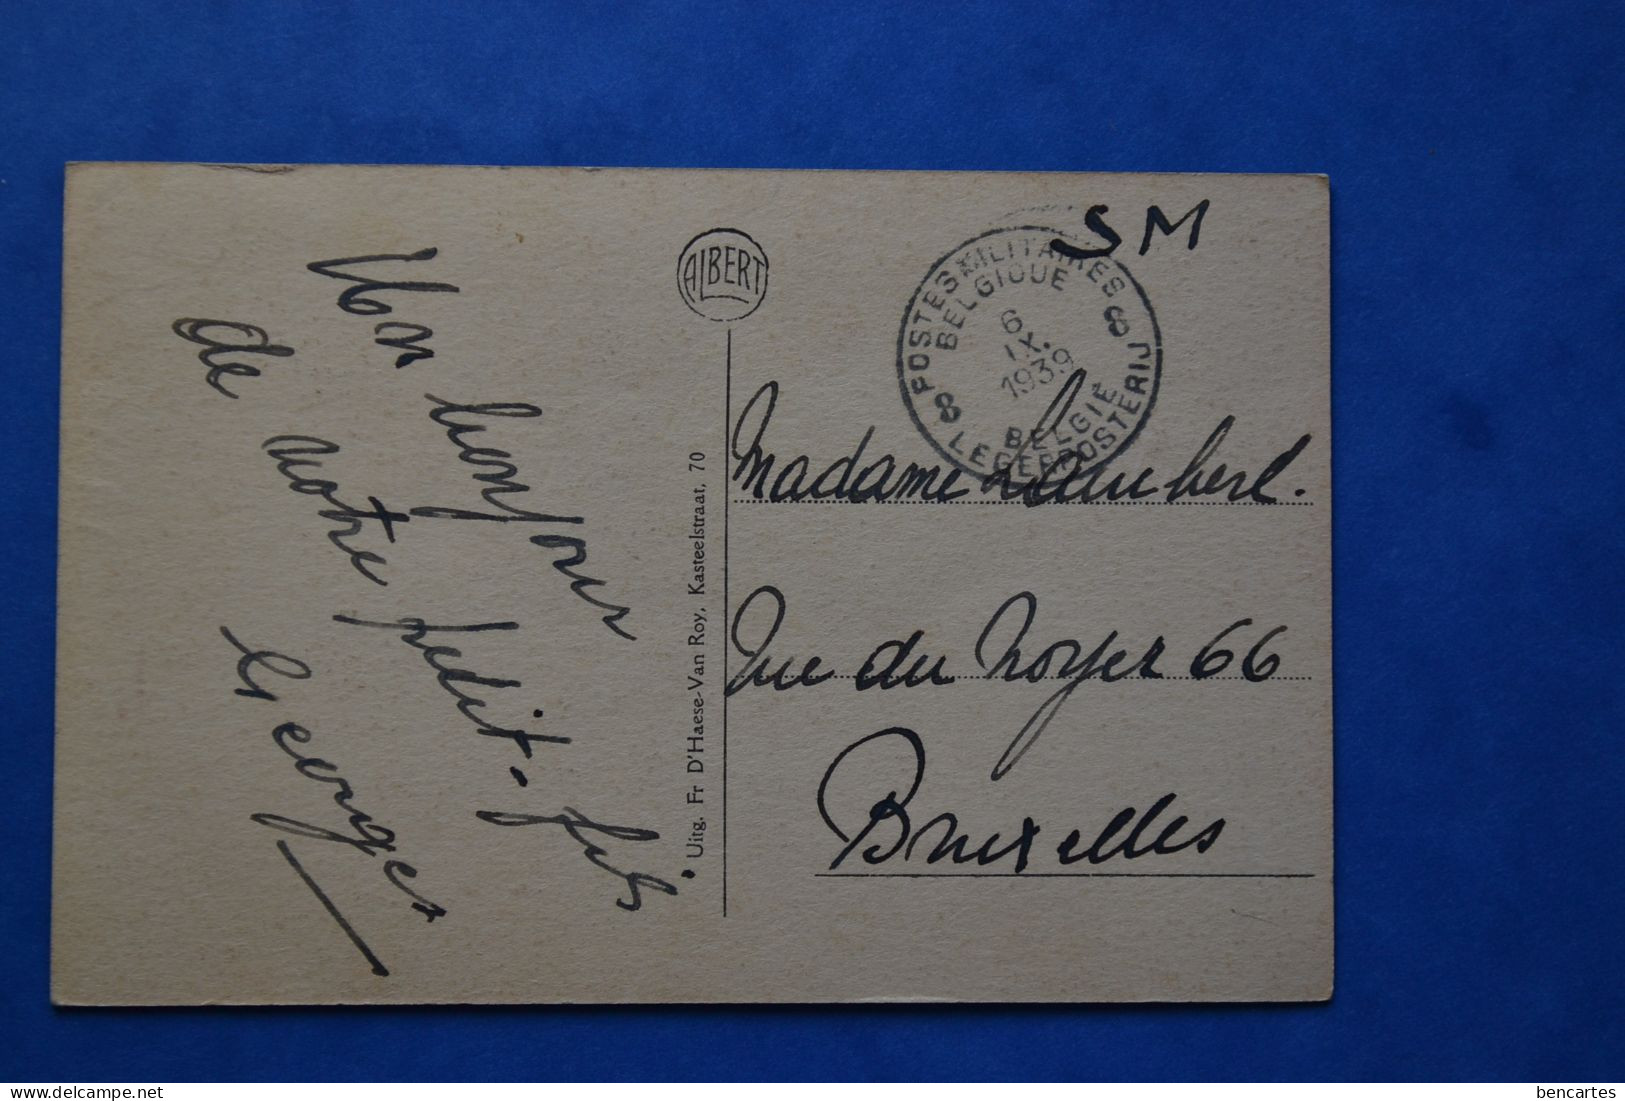 Un bonjour
de notre petit fils
Georges
ALBERT
Uitg. Fr D'Haese-Van Roy, Kasteelstraat, 70
SM
POSTES MILITAIRES
BELGIQUE
6
IX.
1939
8 8
BELGIË
LEGERPOSTERIJ
Madame Lambert.
rue du Noyer 66
Bruxelles
delcampe.net
bencartes